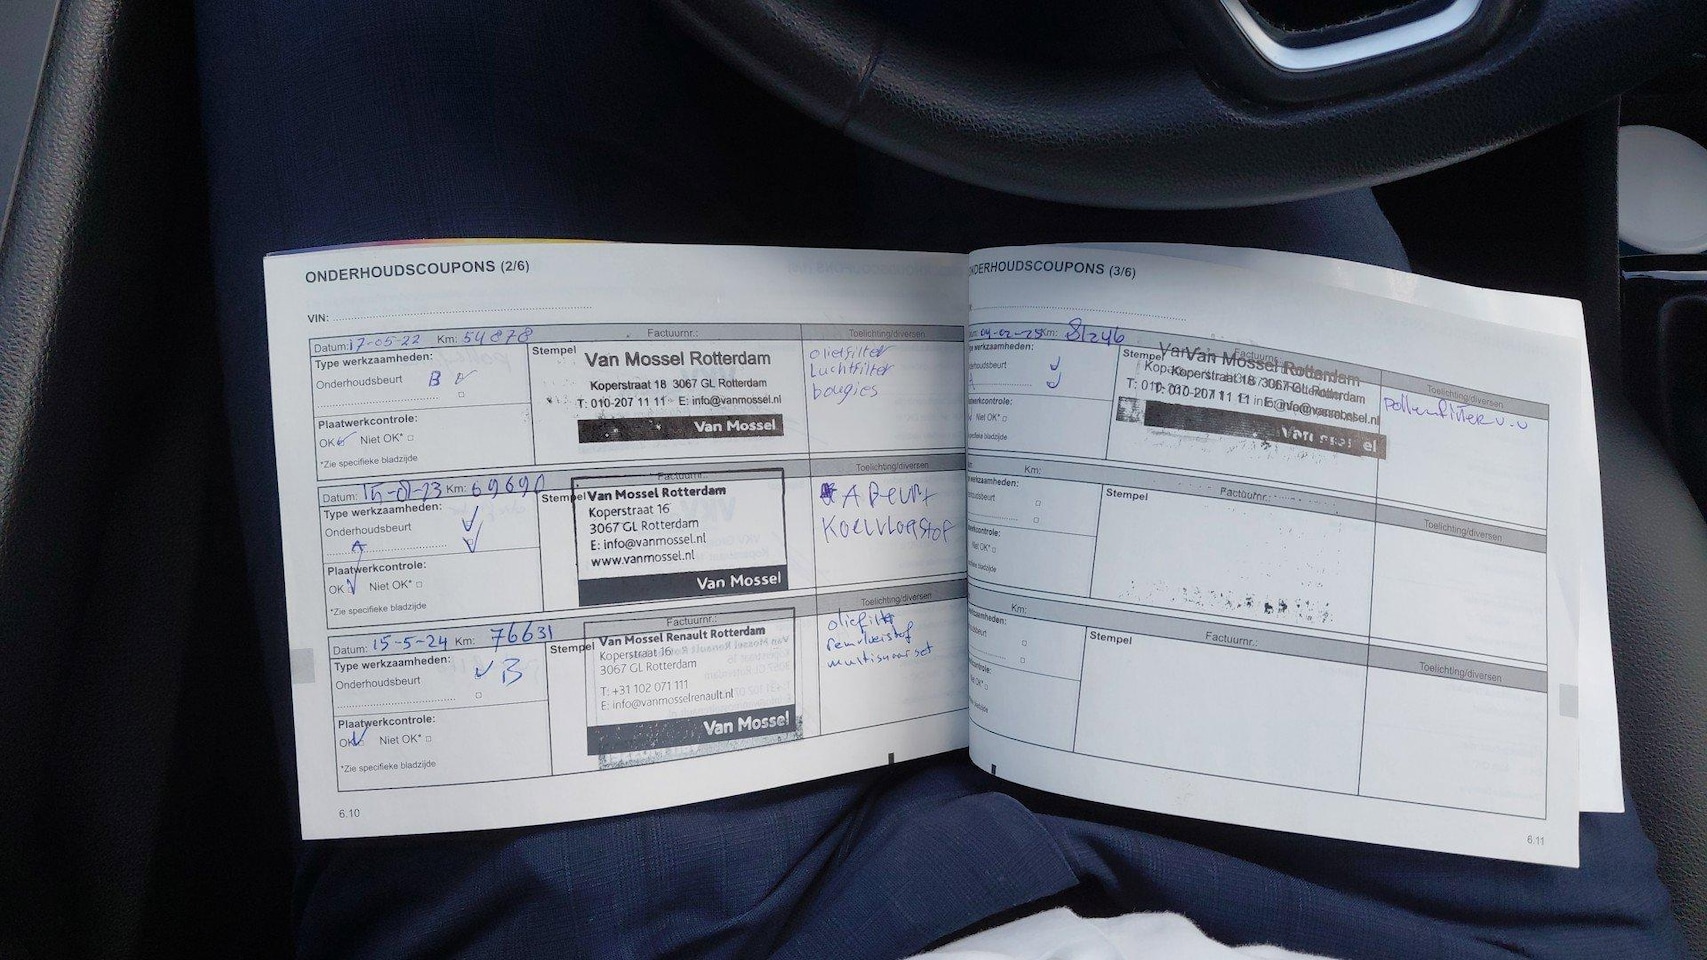 ONDERHOUDSCOUPONS (2/6)
VIN:
Datum: 17-05-22 Km: 54878 Factuurnr.: Toelichting/diversen
Type werkzaamheden:
Onderhoudsbeurt B
Plaatwerkcontrole:
OK Niet OK*
*Zie specifieke bladzijde
Stempel
Van Mossel Rotterdam
Koperstraat 18 3067 GL Rotterdam
T: 010-207 11 11 E: info@vanmossel.nl
Van Mossel
oliefilter
luchtfilter
bougies
Datum: Km: 69690 Factuurnr.: Toelichting/diversen
Type werkzaamheden:
Onderhoudsbeurt
A
Plaatwerkcontrole:
OK Niet OK*
*Zie specifieke bladzijde
Stempel
Van Mossel Rotterdam
Koperstraat 16
3067 GL Rotterdam
E: info@vanmossel.nl
www.vanmossel.nl
Van Mossel
A Beurt
Koelvloeistof
Datum: 15-5-24 Km: 76631 Factuurnr.: Toelichting/diversen
Type werkzaamheden:
Onderhoudsbeurt B
Plaatwerkcontrole:
OK Niet OK*
*Zie specifieke bladzijde
Stempel
Van Mossel Renault Rotterdam
Koperstraat 16
3067 GL Rotterdam
T: +31 102 071 111
E: info@vanmosselrenault.nl
Van Mossel
oliefilter
remvloeistof
multisnaarset
6.10
ONDERHOUDSCOUPONS (3/6)
04-02-25 Km: 81246 Factuurnr.: Toelichting/diversen
werkzaamheden:
Stempel
Van Mossel Rotterdam
Koperstraat 18 3067 GL Rotterdam
T: 010-207 11 11 E: info@vanmossel.nl
Van Mossel
Niet OK*
specifieke bladzijde
pollenfilter
Km: Factuurnr.: Toelichting/diversen
Stempel
Niet OK*
Km: Factuurnr.: Toelichting/diversen
Stempel
Niet OK*
6.11